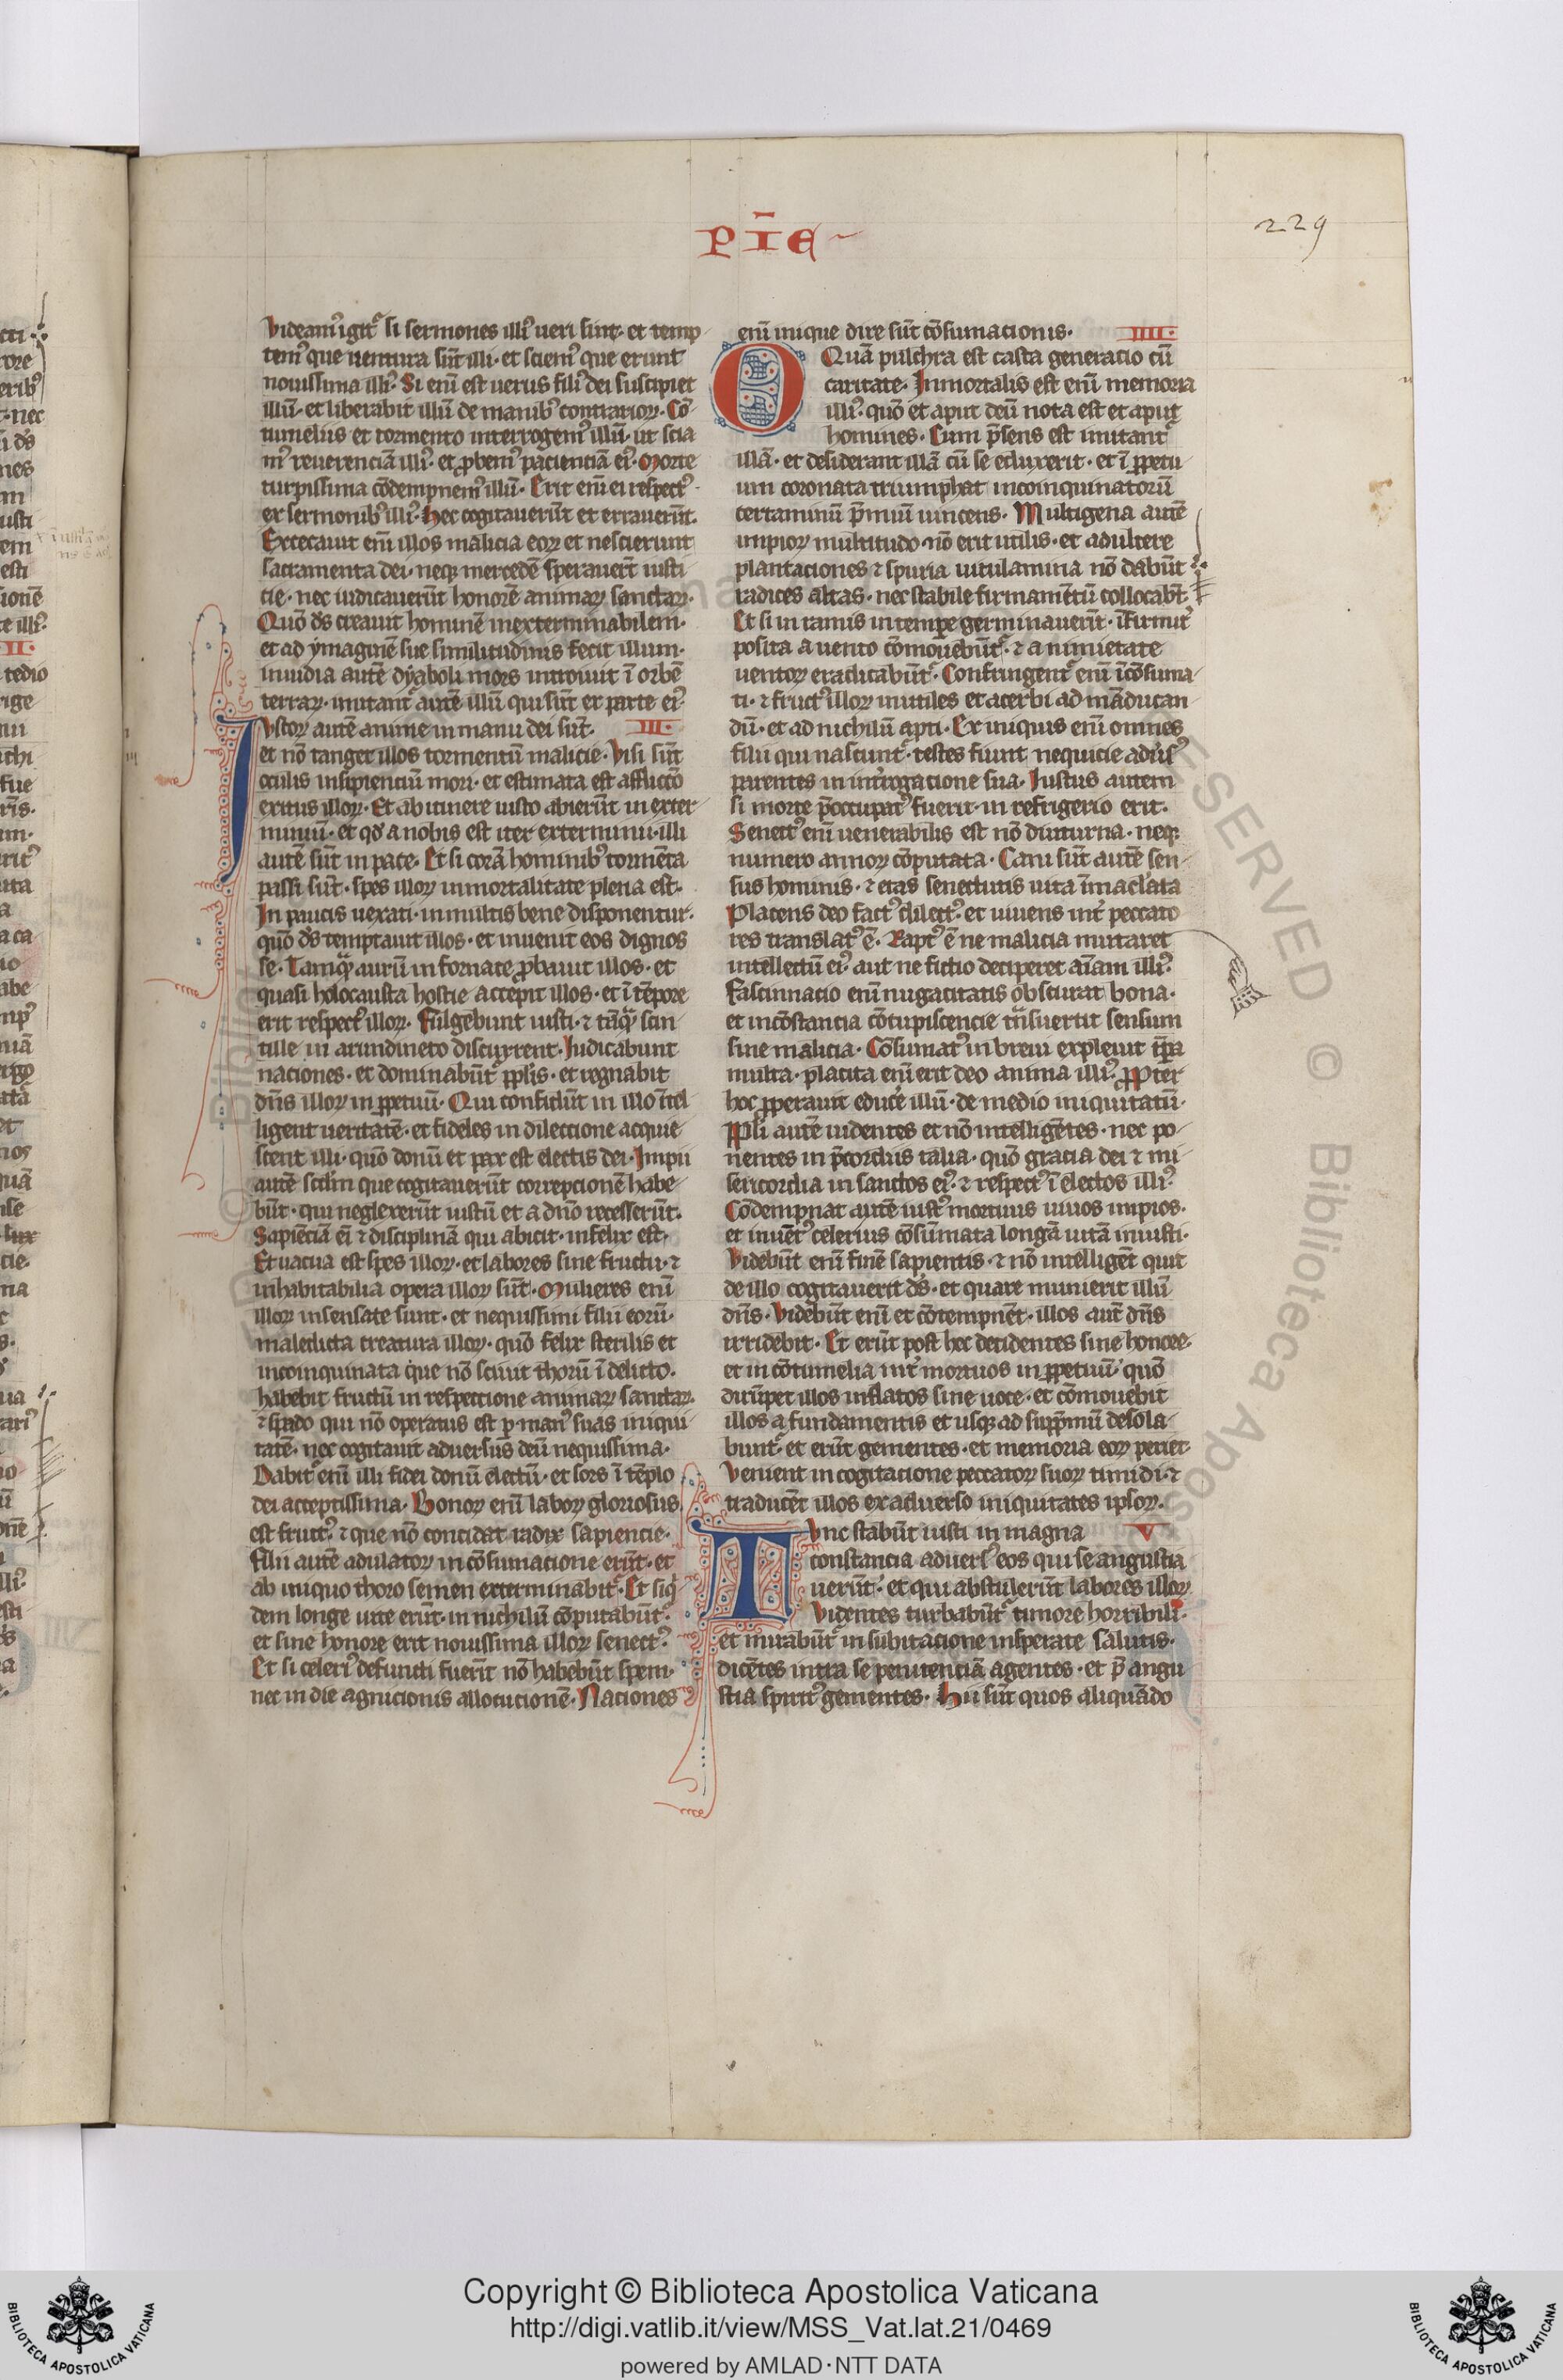 PĪE
229
Videam᷒ igit᷑ si sermones illi᷒ ueri sint· et temp
tem᷒ que uentura sūt illi· et sciem᷒ que erunt
nouissima illi᷒· Si enī est uerus fili᷒ dei suscipiet
illū· et liberabit illū de manib᷒ contrarioꝝ· Cō
tumeliis et tormento interrogem᷒ illū· ut scia
m᷒ reuerenciā illi᷒· et ꝓbem᷒ pacienciā ei᷒· Morte
turpissima cōdempnem᷒ illū· Erit enī ei respect᷒·
ex sermonib᷒ illi᷒· Hec cogitauerūt et errauerūt·
Excecauit enī illos malicia eoꝝ et nescierunt
sacramenta dei· neqꝫ mercedē sperauerūt iusti
cie· nec iudicauerūt honorē animaꝝ sanctaꝝ·
Quō ds̄ creauit hominē inexterminabilem·
et ad ymaginē sue similitudinis fecit illum·
inuidia autē dyaboli mors introiuit ī orbē
terraꝝ· imitant᷑ autē illū qui sūt ex parte ei᷒
Iustoꝝ autē anime in manu dei sūt· III·
et nō tanget illos tormentū malicie· Visi sūt
oculis insipienciū mori· et estimata est afflictō
exitus illoꝝ· Et ab itinere iusto abierūt in exter
miniū· et qd̓ a nobis est iter exterminii· illi
autē sūt in pace· Et si corā hominib᷒ tormēta
passi sūt· spes illoꝝ inmortalitate plena est·
In paucis uexati· in multis bene disponentur·
quō ds̄ temptauit illos· et inuenit eos dignos
se· Tamqᷓ aurū in fornace ꝓbauit illos· et
quasi holocausta hostie accepit illos· et ī tēpore
erit respect᷒ illoꝝ· Fulgebunt iusti· ⁊ tāqᷓ scin
tille in arundineto discurrent· Iudicabunt
naciones· et dominabūt᷑ ppl̓is· et regnabit
dn̄s illoꝝ in ꝑpetuū· Qui confidūt in illo ītel
ligent ueritatē· et fideles in dileccione acquie
scent illi· quō donū et pax est electis dei· Impii
autē scd̓m que cogitauerūt correpcionē habe
būt· qui neglexerūt iustū et a dn̄o recesserūt·
Sapiēciā eī ⁊ disciplinā qui abicit· infelix est·
Et uacua est spes illoꝝ· et labores sine fructu· ⁊
inhabitabilia opera illoꝝ sūt· Mulieres enī
illoꝝ insensate sunt· et nequissimi filii eorū·
maledicta creatura illoꝝ· quō felix sterilis et
incoinquinata que nō sciuit thorū ī delicto·
habebit fructū in respeccione animaꝝ sanctaꝝ·
⁊ spado qui nō operatus est ꝑ man᷒ suas iniqui
tatē· nec cogitauit aduersus deū nequissima·
Dabit᷑ enī illi fidei donū electū· et sors ī tēplo
dei acceptissima· Bonoꝝ enī laboꝝ gloriosus
est fruct᷒· ⁊ que nō concidat radix sapiencie·
filii autē adulatoꝝ in cōsumacione erūt· et
ab iniquo thoro semen exterminabit᷑· Et siq̓
dem longe uite erūt· in nichilū cōputabūt᷑·
et sine honore erit nouissima illoꝝ senect᷒·
Et si celeri᷒ defuncti fuerīt nō habebūt spem·
nec in die agnicionis allocucionē· Naciones
enī inique dire sūt cōsumacionis· IIII·
O Quā pulchra est casta generacio cū
caritate· Inmortalis est enī memoria
illi᷒· quō et aput deū nota est et aput
homines· Cum p̄sens est imitant᷑
illā· et desiderant illā cū se eduxerit· et ī ꝑpetu
um coronata triumphat incoinquinatorū
certaminū p̄miū uincens· Multigena autē
impioꝝ multitudo· nō erit utilis· et adultere
plantaciones ⁊ spuria uitulamina nō dabūt
radices altas· nec stabile firmamētū collocabūt·
Et si in ramis in tempe germinauerīt· īfirmit᷑
posita a uento cōmouebūt᷑· ⁊ a nimietate
uentoꝝ eradicabūt᷑· Confringent᷑ enī īcōsuma
ti· ⁊ fruct᷒ illoꝝ inutiles et acerbi ad māducan
dū· et ad nichilū apti· Ex iniquis enī omnes
filii qui nascunt᷑· testes fiunt nequicie adu̓s᷒
parentes in int̓rogacione sua· Iustus autem
si morte p̄occupat᷒ fuerit· in refrigerio erit·
Senect᷒ enī uenerabilis est nō diuturna· neqꝫ
numero annoꝝ cōputata· Cani sūt autē sen
sus hominis· ⁊ etas senectutis uita īmaculata
Placens deo fact᷒ dilect᷒· et uiuens int̓ peccato
res translat᷒ ē· Rapt᷒ ē ne malicia mutaret
intellectū ei᷒· aut ne fictio deciperet aīam illi᷒·
Fascinnacio enī nugacitatis obscurat bona·
et incōstancia cōcupiscencie trᷓsuertit sensum
sine malicia· Cōsumat᷒ in breui expleuit tp̄a
multa· placita enī erit deo anima illi᷒· ꝓpter
hoc ꝓperauit educe illū· de medio iniquitatū·
Ppl̓i autē uidentes et nō intelligētes· nec po
nentes in p̄cordiis talia· quō gracia dei ⁊ mi
sericordia in sanctos ei᷒· ⁊ respect᷒ ī electos illi᷒·
Cōdempnat autē iust᷒ mortuus uiuos impios·
et iuuēt᷒ celerius cōsūmata longā uitā iniusti·
Videbūt enī finē sapientis· ⁊ nō intelligēt quit
de illo cogitauerit ds̄· et quare munierit illū
dn̄s· Videbūt enī et cōtempnēt· illos aut̄ dn̄s
irridebit· Et erūt post hec decidentes sine honore·
et in cōtumelia int̓ mortuos in ꝑpetuū· quō
dirūpet illos inflatos sine uoce· et cōmouebit
illos a fundamentis et usqꝫ ad supp̄mū desola
bunt᷑· et erūt gementes· et memoria eoꝝ periet·
Venient in cogitacione peccatoꝝ suoꝝ timidi· ⁊
traducēt illos ex aduerso iniquitates ipsoꝝ·
Tunc stabūt iusti in magna V
constancia aduers᷒ eos qui se angustia
uerūt· et qui abstulerūt labores illoꝝ
Videntes turbabūt᷑ timore horribili·
et mirabūt᷑ in subitacione insperate salutis·
dicētes intra se penitenciā agentes· et p̄ angu
stia spirit᷒ gementes· Hii sūt quos aliquādo
Copyright © Biblioteca Apostolica Vaticana
http://digi.vatlib.it/view/MSS_Vat.lat.21/0469
powered by AMLAD·NTT DATA
BIBLIOTECA APOSTOLICA VATICANA
BIBLIOTECA APOSTOLICA VATICANA